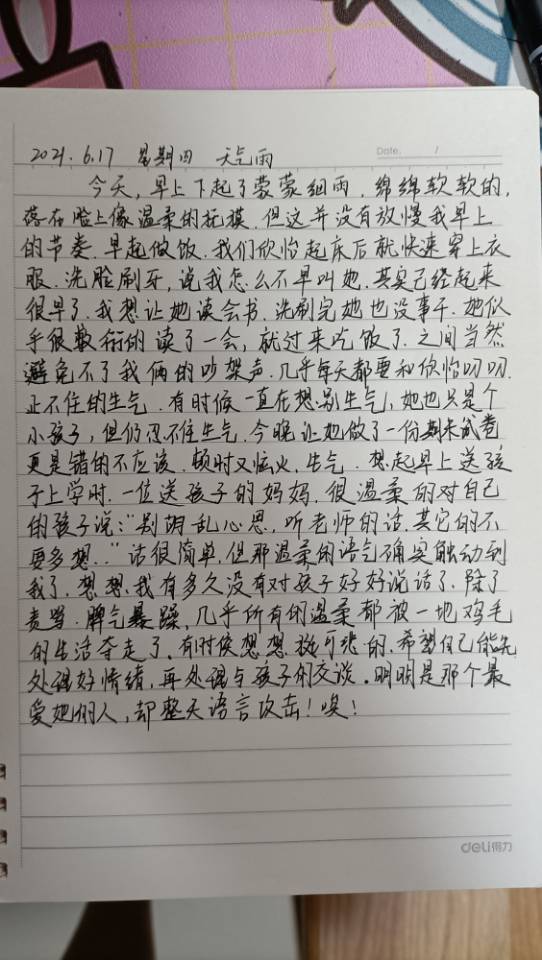 Date. /
2021. 6.17 星期四 天气雨
今天,早上下起了蒙蒙细雨.绵绵软软的,
落在脸上像温柔的抚摸.但这并没有放慢我早上
的节奏.早起做饭.我们欣怡起床后就快速穿上衣
服.洗脸刷牙,说我怎么不早叫她.其实已经起来
很早了.我想让她读会书.洗刷完她也没事干.她似
乎很敷衍的读了一会,就过来吃饭了.之间当然
避免不了我俩的吵架声.几乎每天都要和欣怡叨叨.
止不住的生气.有时候一直在想别生气,她也只是个
小孩子,但仍忍不住生气.今晚让她做了一份期末试卷
更是错的不应该.顿时又恼火,生气.想起早上送孩
子上学时.一位送孩子的妈妈.很温柔的对自己
的孩子说:"别胡乱心思,听老师的话.其它的不
要多想.."话很简单.但那温柔的语气确实触动到
我了.想想我有多久没有对孩子好好说话了.除了
责骂.脾气暴躁,几乎所有的温柔都被一地鸡毛
的生活夺走了.有时候想想挺可悲的.希望自己能先
处理好情绪,再处理与孩子的交谈.明明是那个最
爱她的人,却整天语言攻击!唉!
deli得力